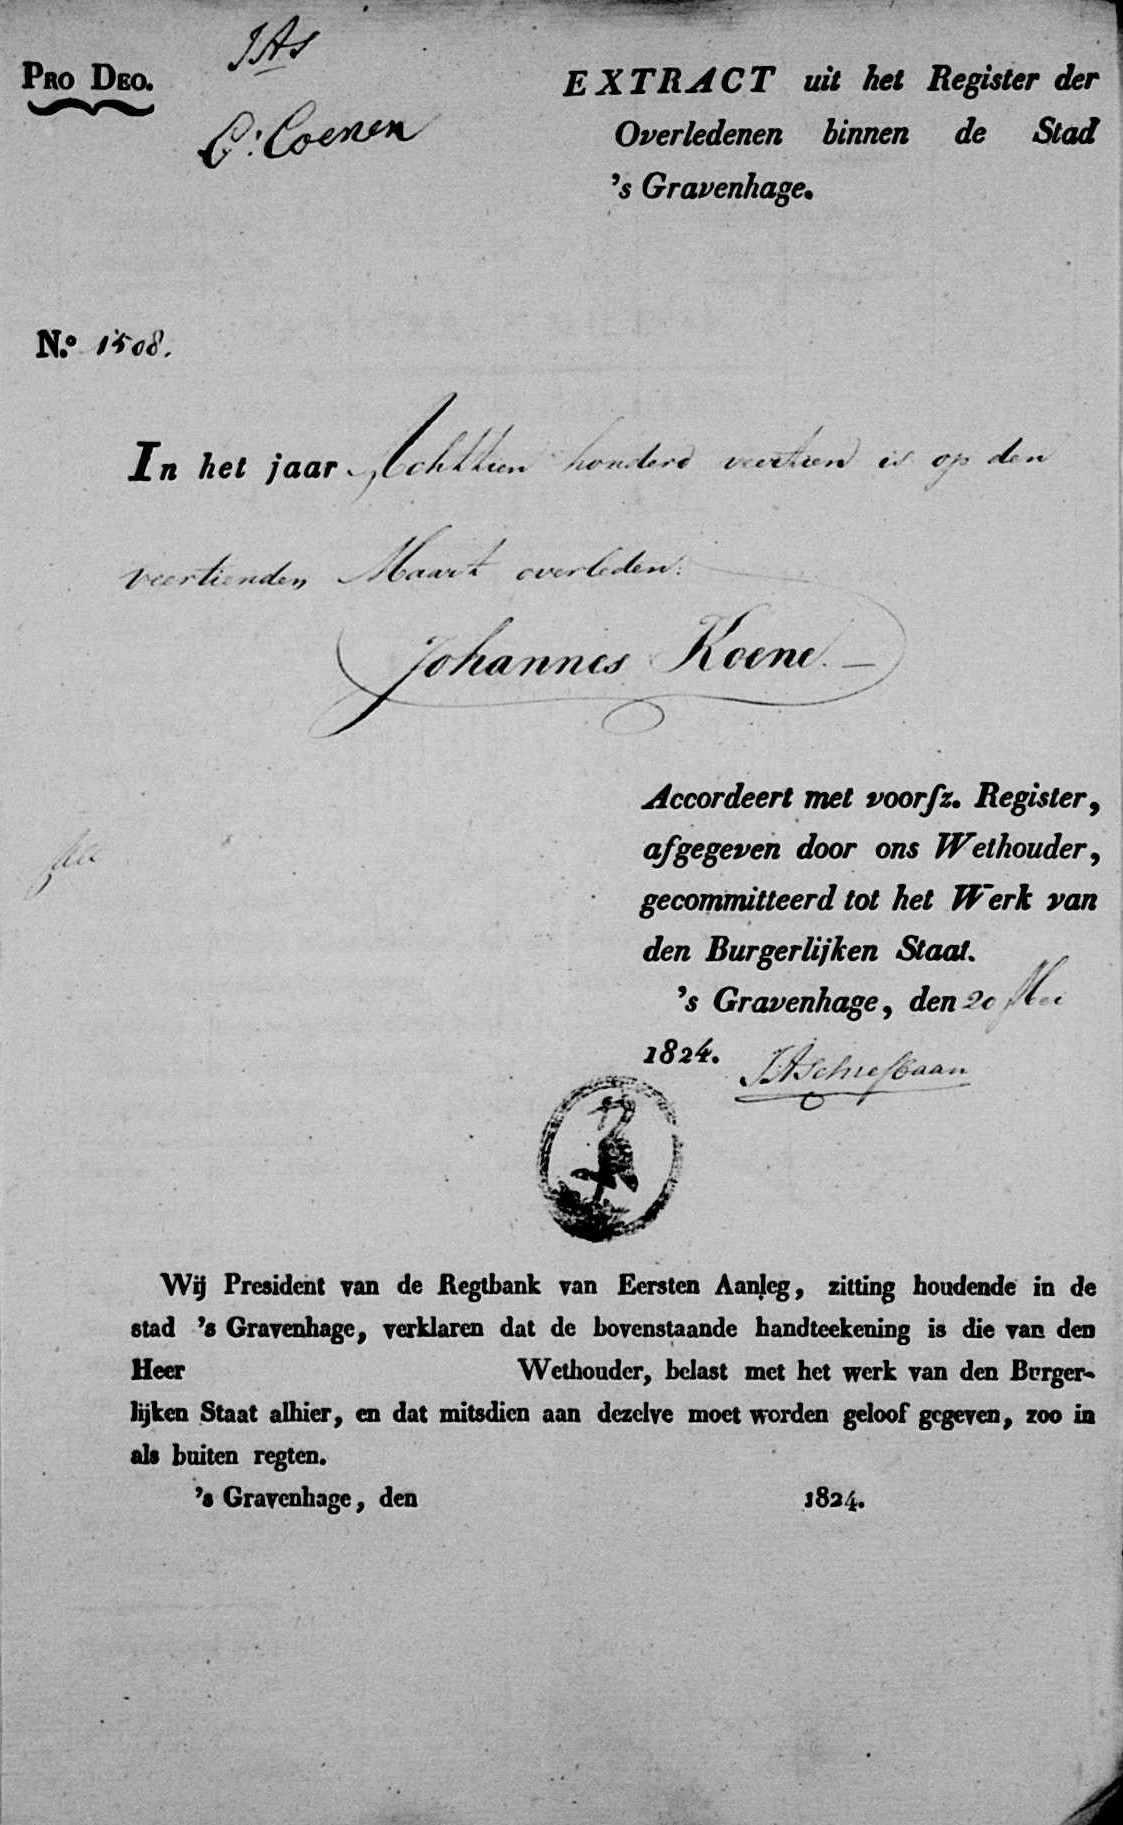 JAs
PRO DEO.
C: Coenen
EXTRACT uit het Register der
Overledenen binnen de Stad
's Gravenhage.
N.º 1508.
In het jaar Achttien honderd veertien is op den
veertienden Maart overleden:
Johannes Koene. —
Accordeert met voorſz. Register,
afgegeven door ons Wethouder,
gecommitteerd tot het Werk van
den Burgerlijken Staat.
's Gravenhage, den 20 Mei
1824.
Wij President van de Regtbank van Eersten Aanleg, zitting houdende in de
stad 's Gravenhage, verklaren dat de bovenstaande handteekening is die van den
Heer Wethouder, belast met het werk van den Burger-
lijken Staat alhier, en dat mitsdien aan dezelve moet worden geloof gegeven, zoo in
als buiten regten.
's Gravenhage, den 1824.